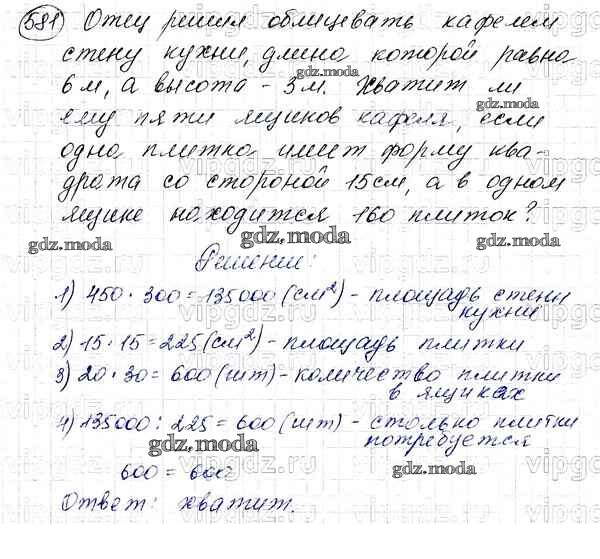 581) Отец решил облицевать кафелем
стену кухни, длина которой равна
6 м, а высота - 3 м. Хватит ли
ему пяти ящиков кафеля, если
одна плитка имеет форму ква-
драта со стороной 15 см, а в одном
ящике находится 160 плиток?
Решение:
1) 450 · 300 = 135000 (см²) - площадь стены
кухни
2) 15 · 15 = 225 (см²) - площадь плитки
3) 20 · 30 = 600 (шт) - количество плитки
в ящиках
4) 135000 : 225 = 600 (шт) - столько плитки
потребуется
600 = 600
Ответ: хватит.
gdz.moda
gdz.moda
gdz.moda
gdz.moda
gdz.moda
gdz.moda
gdz.moda
gdz.moda
gdz.moda